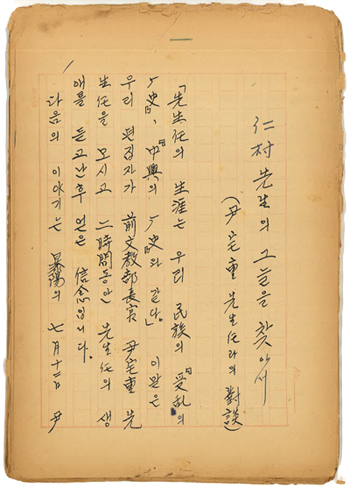 仁村先生의 그늘을 찾아서
(尹宅重 先生任과의 對談)
「先生任의 生涯는 우리 民族의 受乱의
历史, 中興의 历史와 같다.」 이 말은
우리 편집자가 前文教部長官 尹宅重 先
生任을 모시고 二時間동안 先生任의 생
애를 듣고 난 후 얻은 信念입니다.
다음의 이야기는 暴陽의 七月十二日 尹